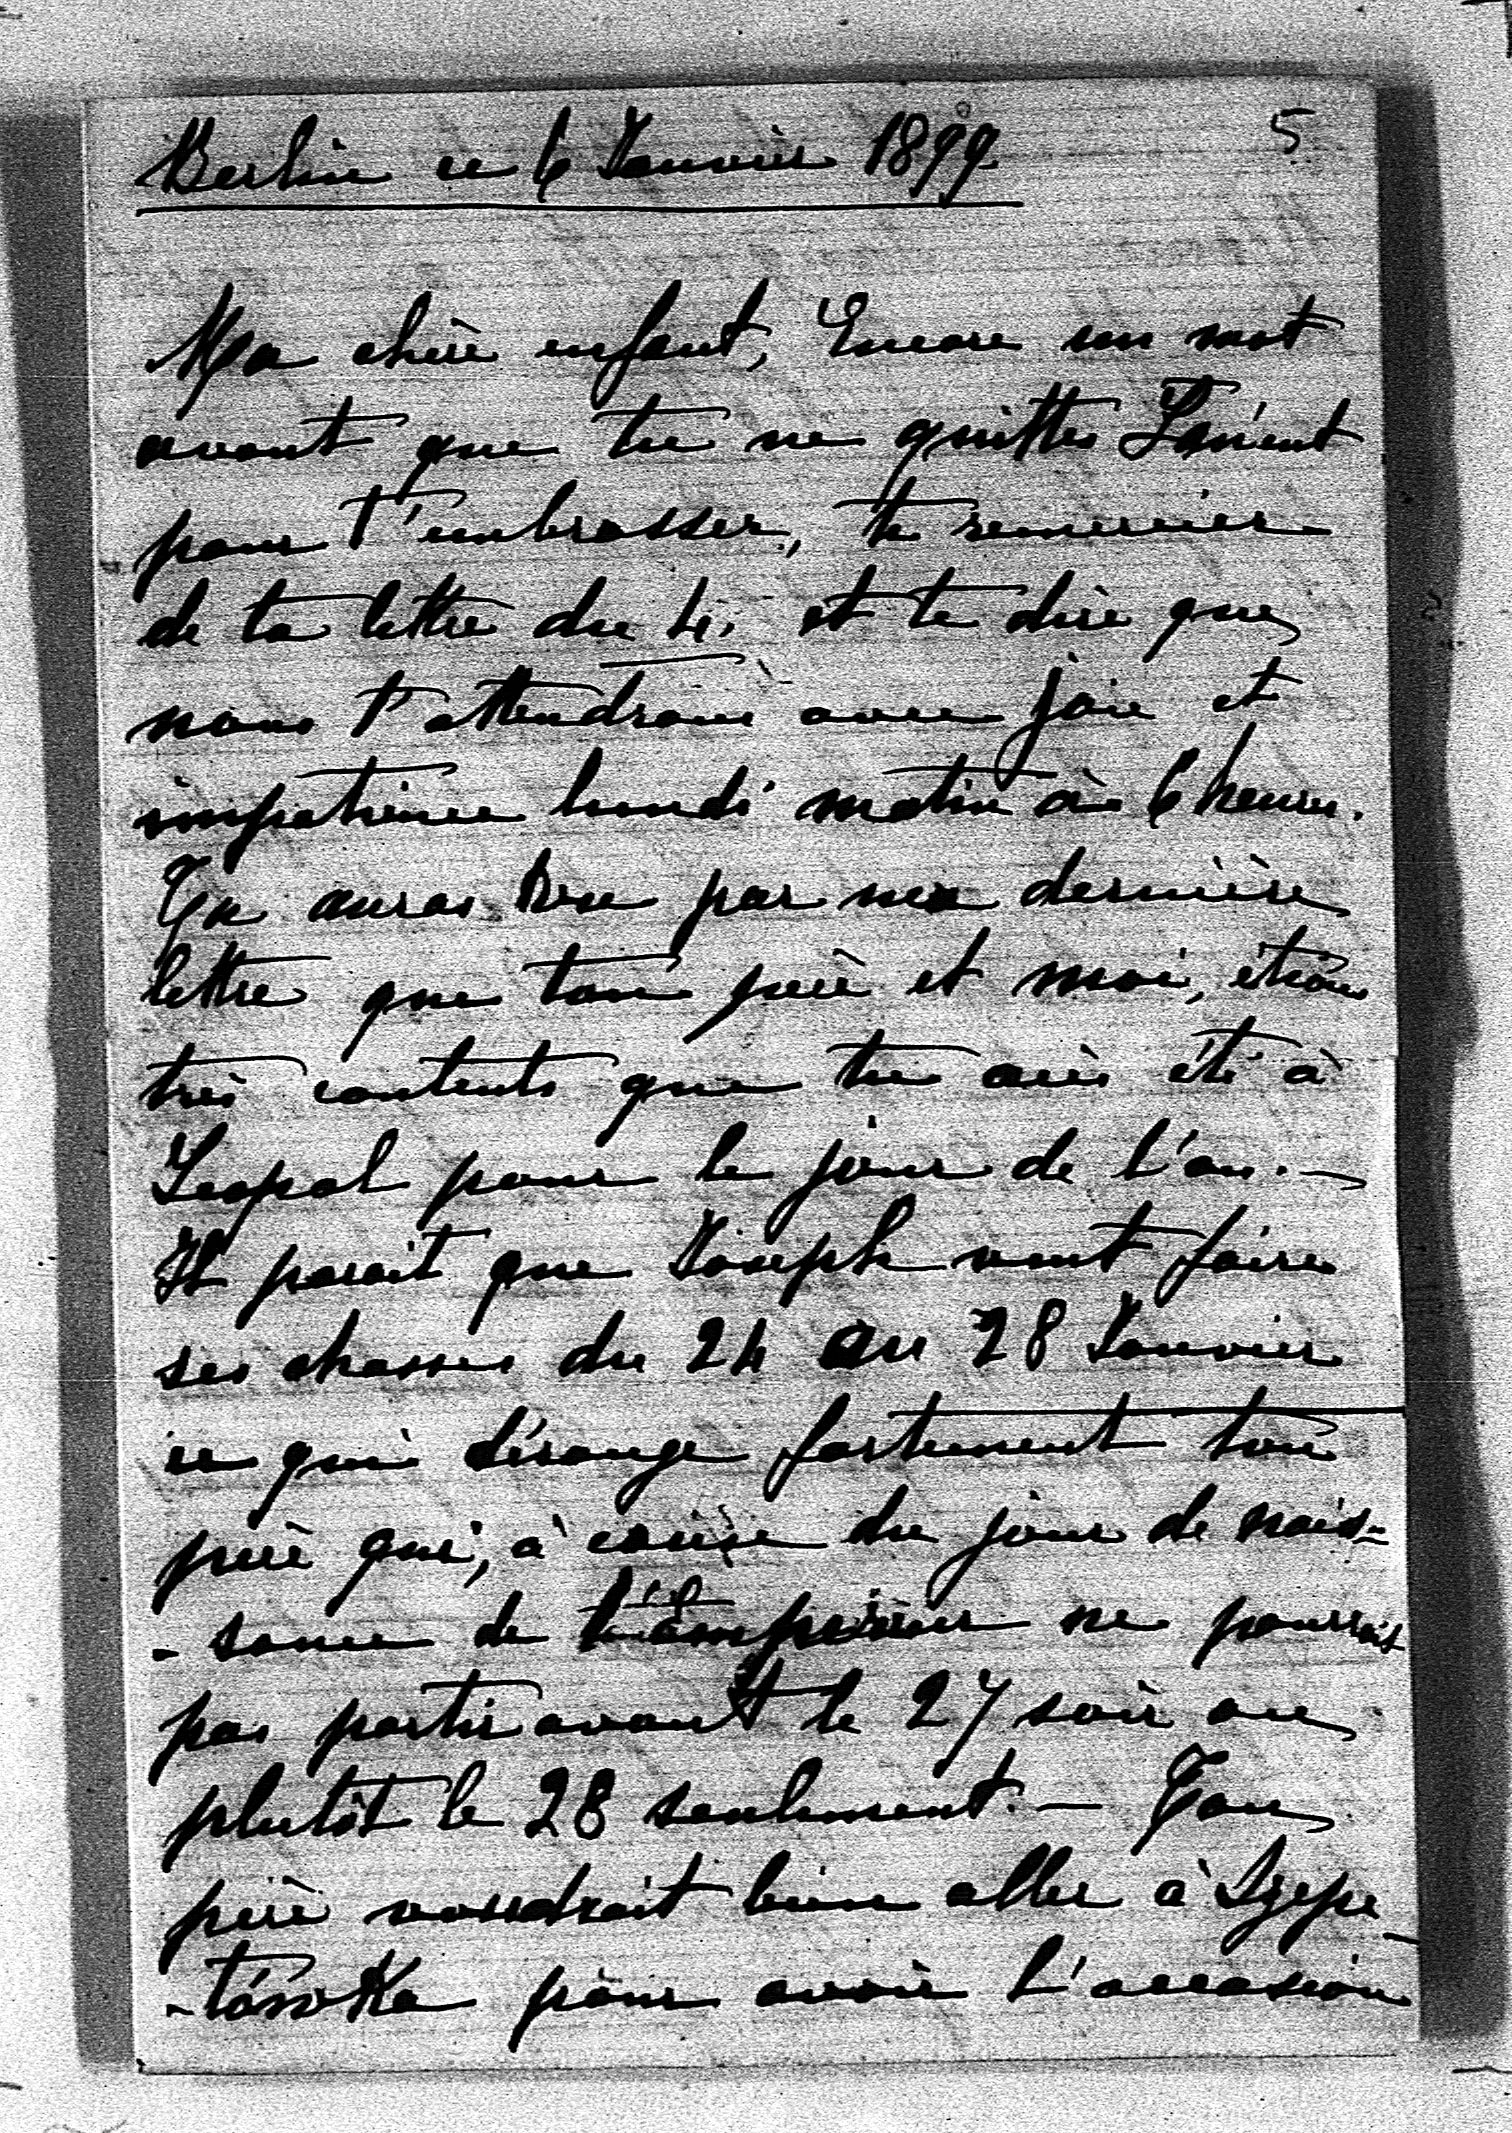 Berlin ce 6 Janvier 1899
5
Ma chère enfant, Encore un mot
avant que tu ne quittes Lancut
pour t'embrasser, te remercier
de ta lettre du 4, et te dire que
nous t'attendrons avec joie et
impatience lundi matin à 6 heures.
Tu auras vu par ma dernière
lettre que ton père et moi, étions
très contents que tu aies été à
Léopol pour le jour de l'an. —
Il parait que Joseph veut faire
ses chasses du 24 au 28 Janvier
ce qui dérange fortement ton
père qui, à cause du jour de nais-
- sance de l'Empereur ne pourrait
pas partir avant le 27 soir ou
plutôt le 28 seulement. — Ton
père voudrait bien aller à Szepe-
- tówka pour avoir l'occasion